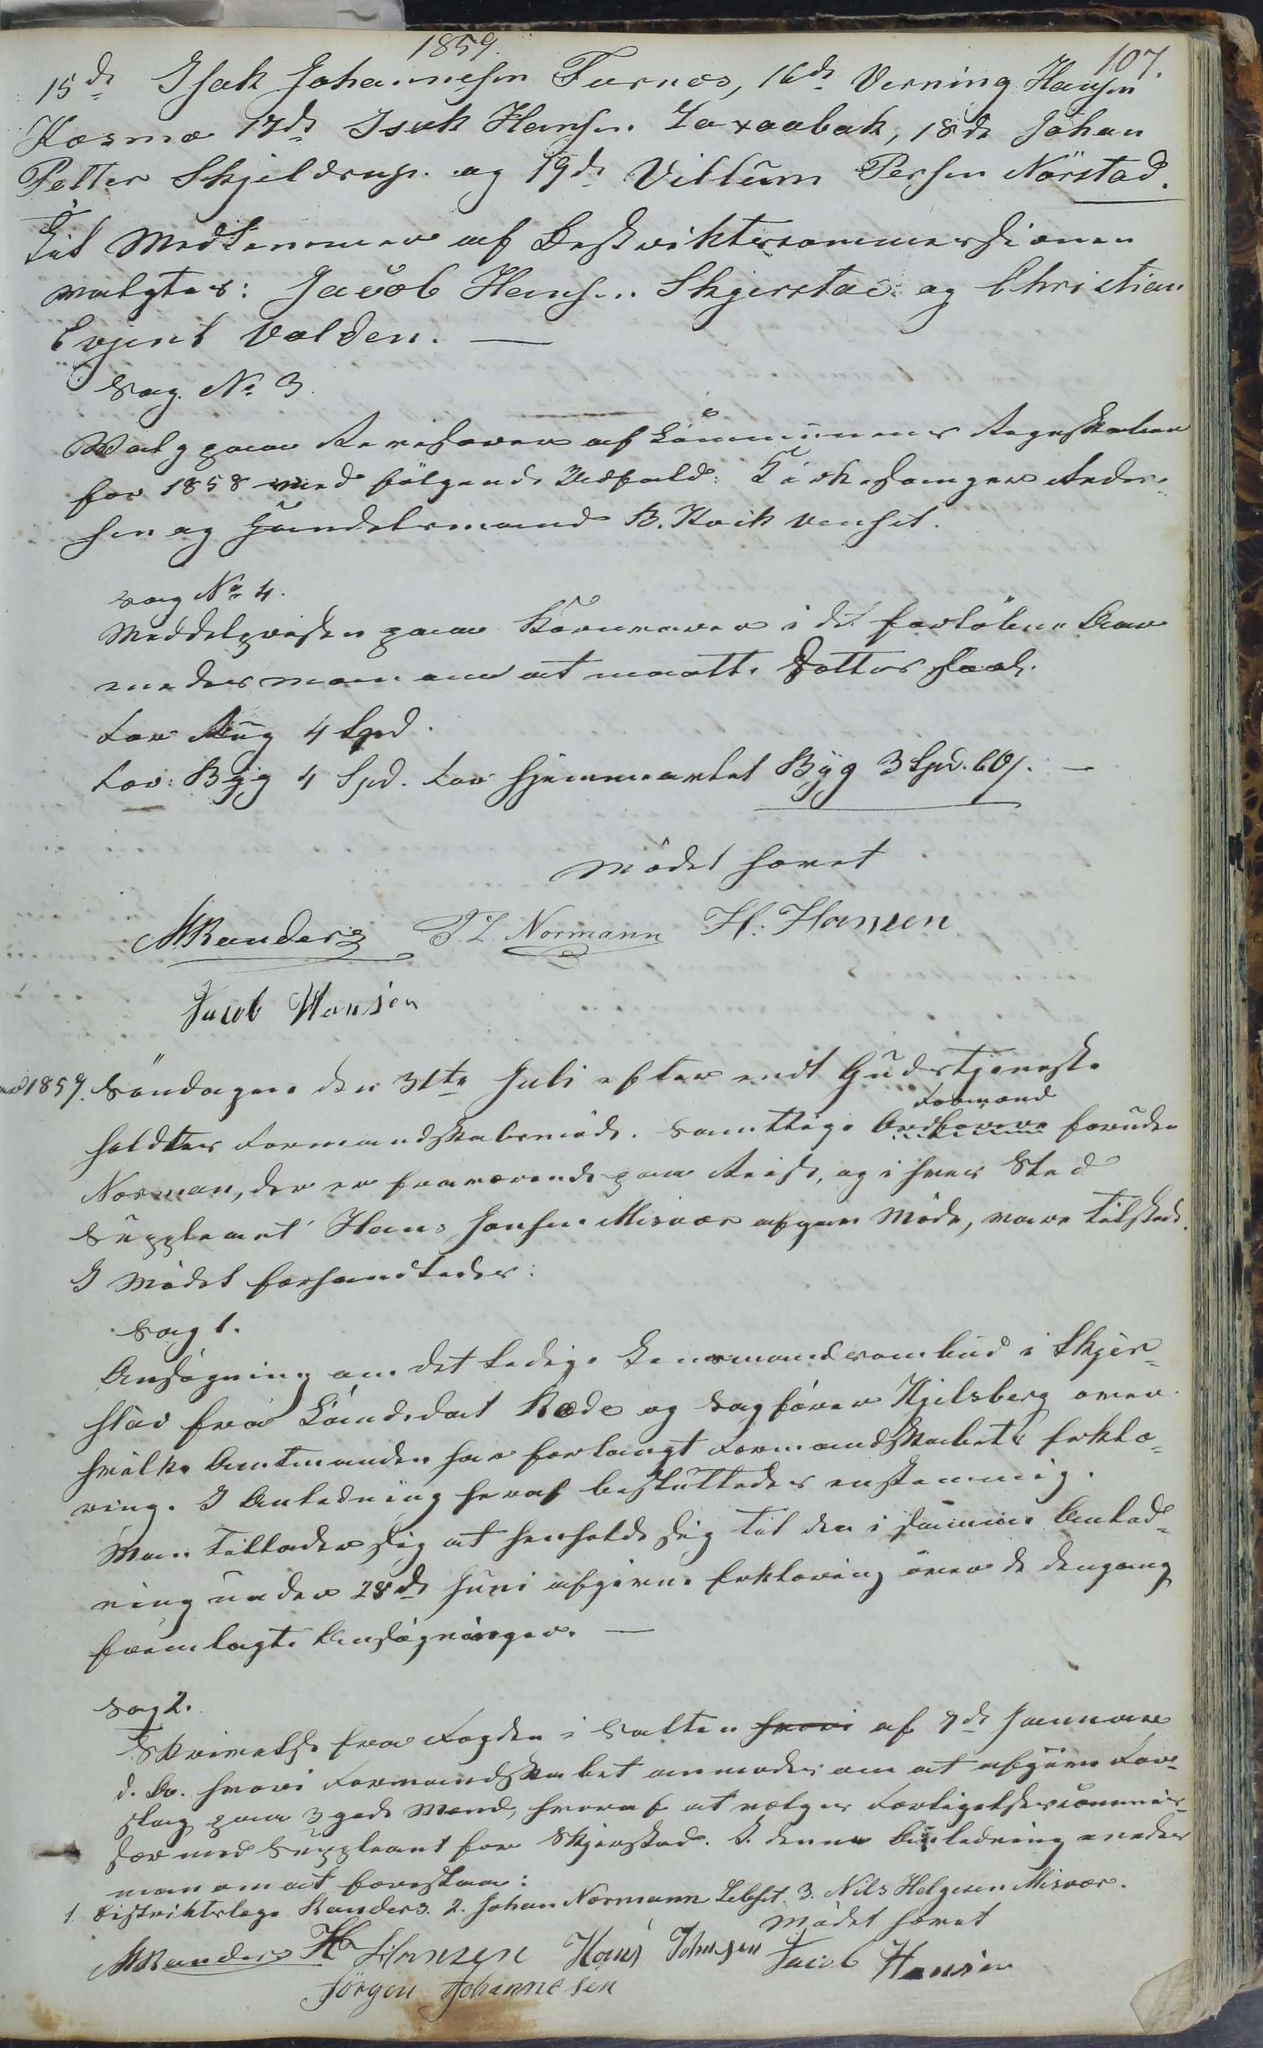 1859.
107.
15de Isak Johannesen Furnæs, 16de Verning Hansen
Kosmo 17de Isak Hansen Laxaabak, 18de Johan
Petter Skjeldrup. og 19de Villum Persen Nörstad.
Til Medlemmer af Distriktscommissionen
valgtes: Jacob Hansen Skjerstad og Christian
Evjent Valden. —
Sag No 3.
Valg paa Revisorer af Communens Regnskaber
for 1858 med følgende Udfald: Kirkesanger Ander-
sen og Handelsmand B. Koik Venset.
Sag No 4.
Middelprisen paa Kornvarer i det forløbne Aar
enedes man om at maatte sættes saal.
For Rug 4 Spd.
For Byg 4 Spd. For hjemmeavlet Byg 3 Spd. 60 s. —
Mödet hævet
MRanders J. L. Normann H. Hansen
Jacob Hansen
1859. Söndagen den 31te Juli efter endt Gudstjeneste
holdtes Formandskabsmöde. Samtlige Ordförere Formænd foruden
Norman, der er fraværende paa Reise, og i hvis Sted
Suppleant Hans Jonsen Misvær afgav Möde, vare tilstede.
I Mödet forhandledes:
Sag 1.
Ansøgning om det ledige Lensmandsombud i Skjer-
stad fra Candidat Bode og Sagförer Kjelsberg over
hvilke Amtmanden har forlangt Formandskabets Erklæ-
ring. I Anledning heraf besluttedes enstemmig.
Man tillader sig at henholde sig til den i samme Anled-
ning under 28de Juni afgivne Erklæring over de dengang
fremlagte Ansøgninger. —
Sag 2.
Skrivelse fra Fogden i Salten hvori af 7de Januar
d. A. hvori Formandskabet anmodes om at afgive For-
slag paa 3 gode Mænd, hvoraf at vælges Forligelsescommis-
sær med Suppleant for Skjerstad. I denne Anledning enedes
man om at foreslaa:
1. Distriktslæge Randers. 2. Johan Normann Leivset. 3. Nils Helgesen Misvær.
Mödet hævet
MRanders H Hansen Hans Johnsen Jacob Hansen
Jörgen Johannesen